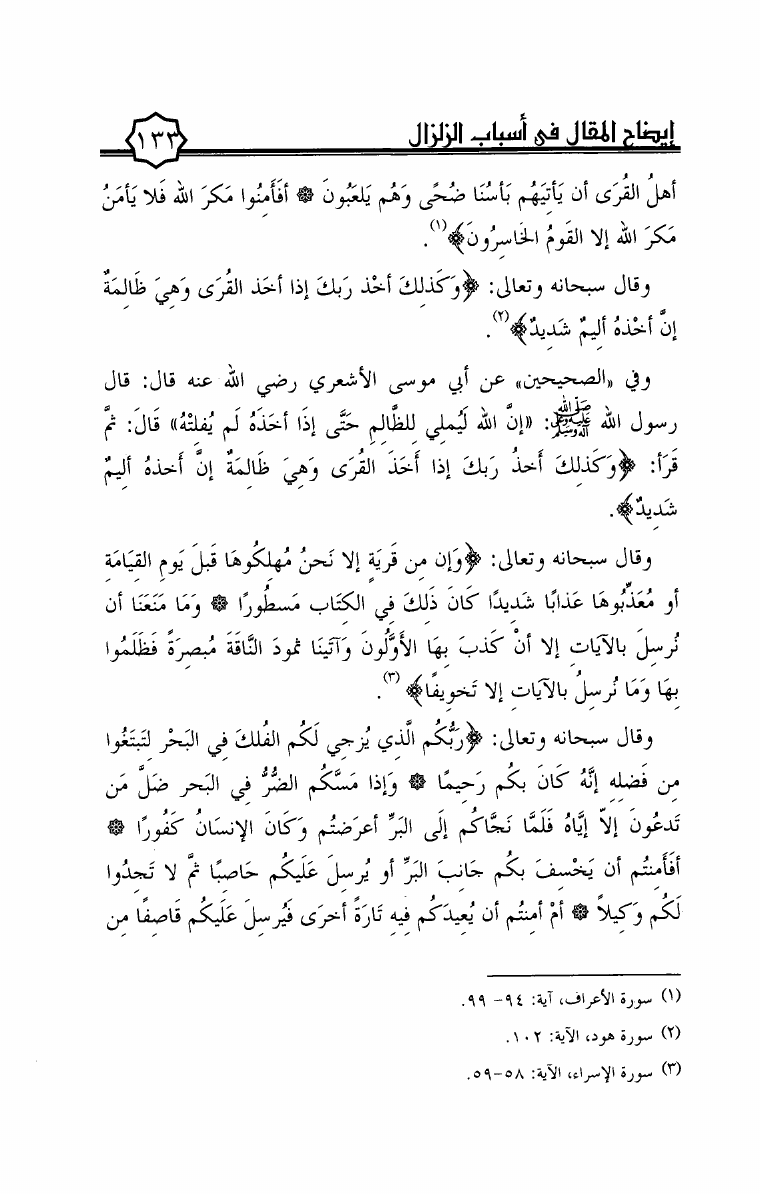 إيضاح المقال في أسباب الزلزال
١٣٣
أهلُ القُرَى أن يَأتيَهُم بَأسُنَا ضُحًى وَهُم يَلعَبُونَ ۞ أفَأَمنُوا مَكرَ الله فَلا يَأمَنُ
مَكرَ الله إلا القَومُ الخَاسِرُونَ﴾(١).
وقال سبحانه وتعالى: ﴿وَكَذلِكَ أخْذ رَبكَ إذا أخَذ القُرَى وَهِيَ ظَالِمَةٌ
إنَّ أخْذهُ أليمٌ شَدِيدٌ﴾(٢).
وفي «الصحيحين» عن أبي موسى الأشعري رضي الله عنه قال: قال
رسول الله ﷺ: «إنَّ الله لَيُملي لِلظَّالِم حَتَّى إذَا أخَذَهُ لَم يُفلِتْهُ» قَالَ: ثُمَّ
قَرَأَ: ﴿وَكَذلِكَ أَخذُ رَبكَ إذا أَخَذَ القُرَى وَهِيَ ظَالِمَةٌ إنَّ أَخذهُ أليمٌ
شَدِيدٌ﴾.
وقال سبحانه وتعالى: ﴿وَإن مِن قَريَةٍ إلا نَحنُ مُهلِكُوهَا قَبلَ يَومِ القيَامَةِ
أو مُعَذِّبُوهَا عَذابًا شَدِيدًا كَانَ ذَلِكَ فِي الكتَاب مَسطُورًا ۞ وَمَا مَنَعَنَا أن
نُرسِلَ بالآيَاتِ إلا أنْ كَذبَ بهَا الأوَّلُونَ وَآتَينَا ثمودَ النَّاقَةَ مُبصِرَةً فَظَلَمُوا
بهَا وَمَا نُرسِلُ بالآيَاتِ إلا تَخويفًا﴾(٣).
وقال سبحانه وتعالى: ﴿رَبُّكُم الَّذي يُزجِي لَكُم الفُلكَ فِي البَحْر لتَبتَغُوا
مِن فَضلِهِ إنَّهُ كَانَ بكُم رَحيمًا ۞ وَإذا مَسَّكُم الضُّرُّ فِي البَحر ضَلَّ مَن
تَدعُونَ إلاّ إيَّاهُ فَلَمَّا نَجَّاكُم إلَى البَرِّ أعرَضتُم وَكَانَ الإنسَانُ كَفُورًا ۞
أفَأَمِنتُم أن يَخْسِفَ بكُم جَانبَ البَرِّ أو يُرسِلَ عَلَيكُم حَاصِبًا ثمَّ لا تَجِدُوا
لَكُم وَكيلاً ۞ أمْ أمِنتُم أن يُعِيدَكُم فِيهِ تَارَةً أخرَى فَيُرسِلَ عَلَيكُم قَاصِفًا مِن
(١) سورة الأعراف، آية: ٩٤- ٩٩.
(٢) سورة هود، الآية: ١٠٢.
(٣) سورة الإسراء، الآية: ٥٨-٥٩.